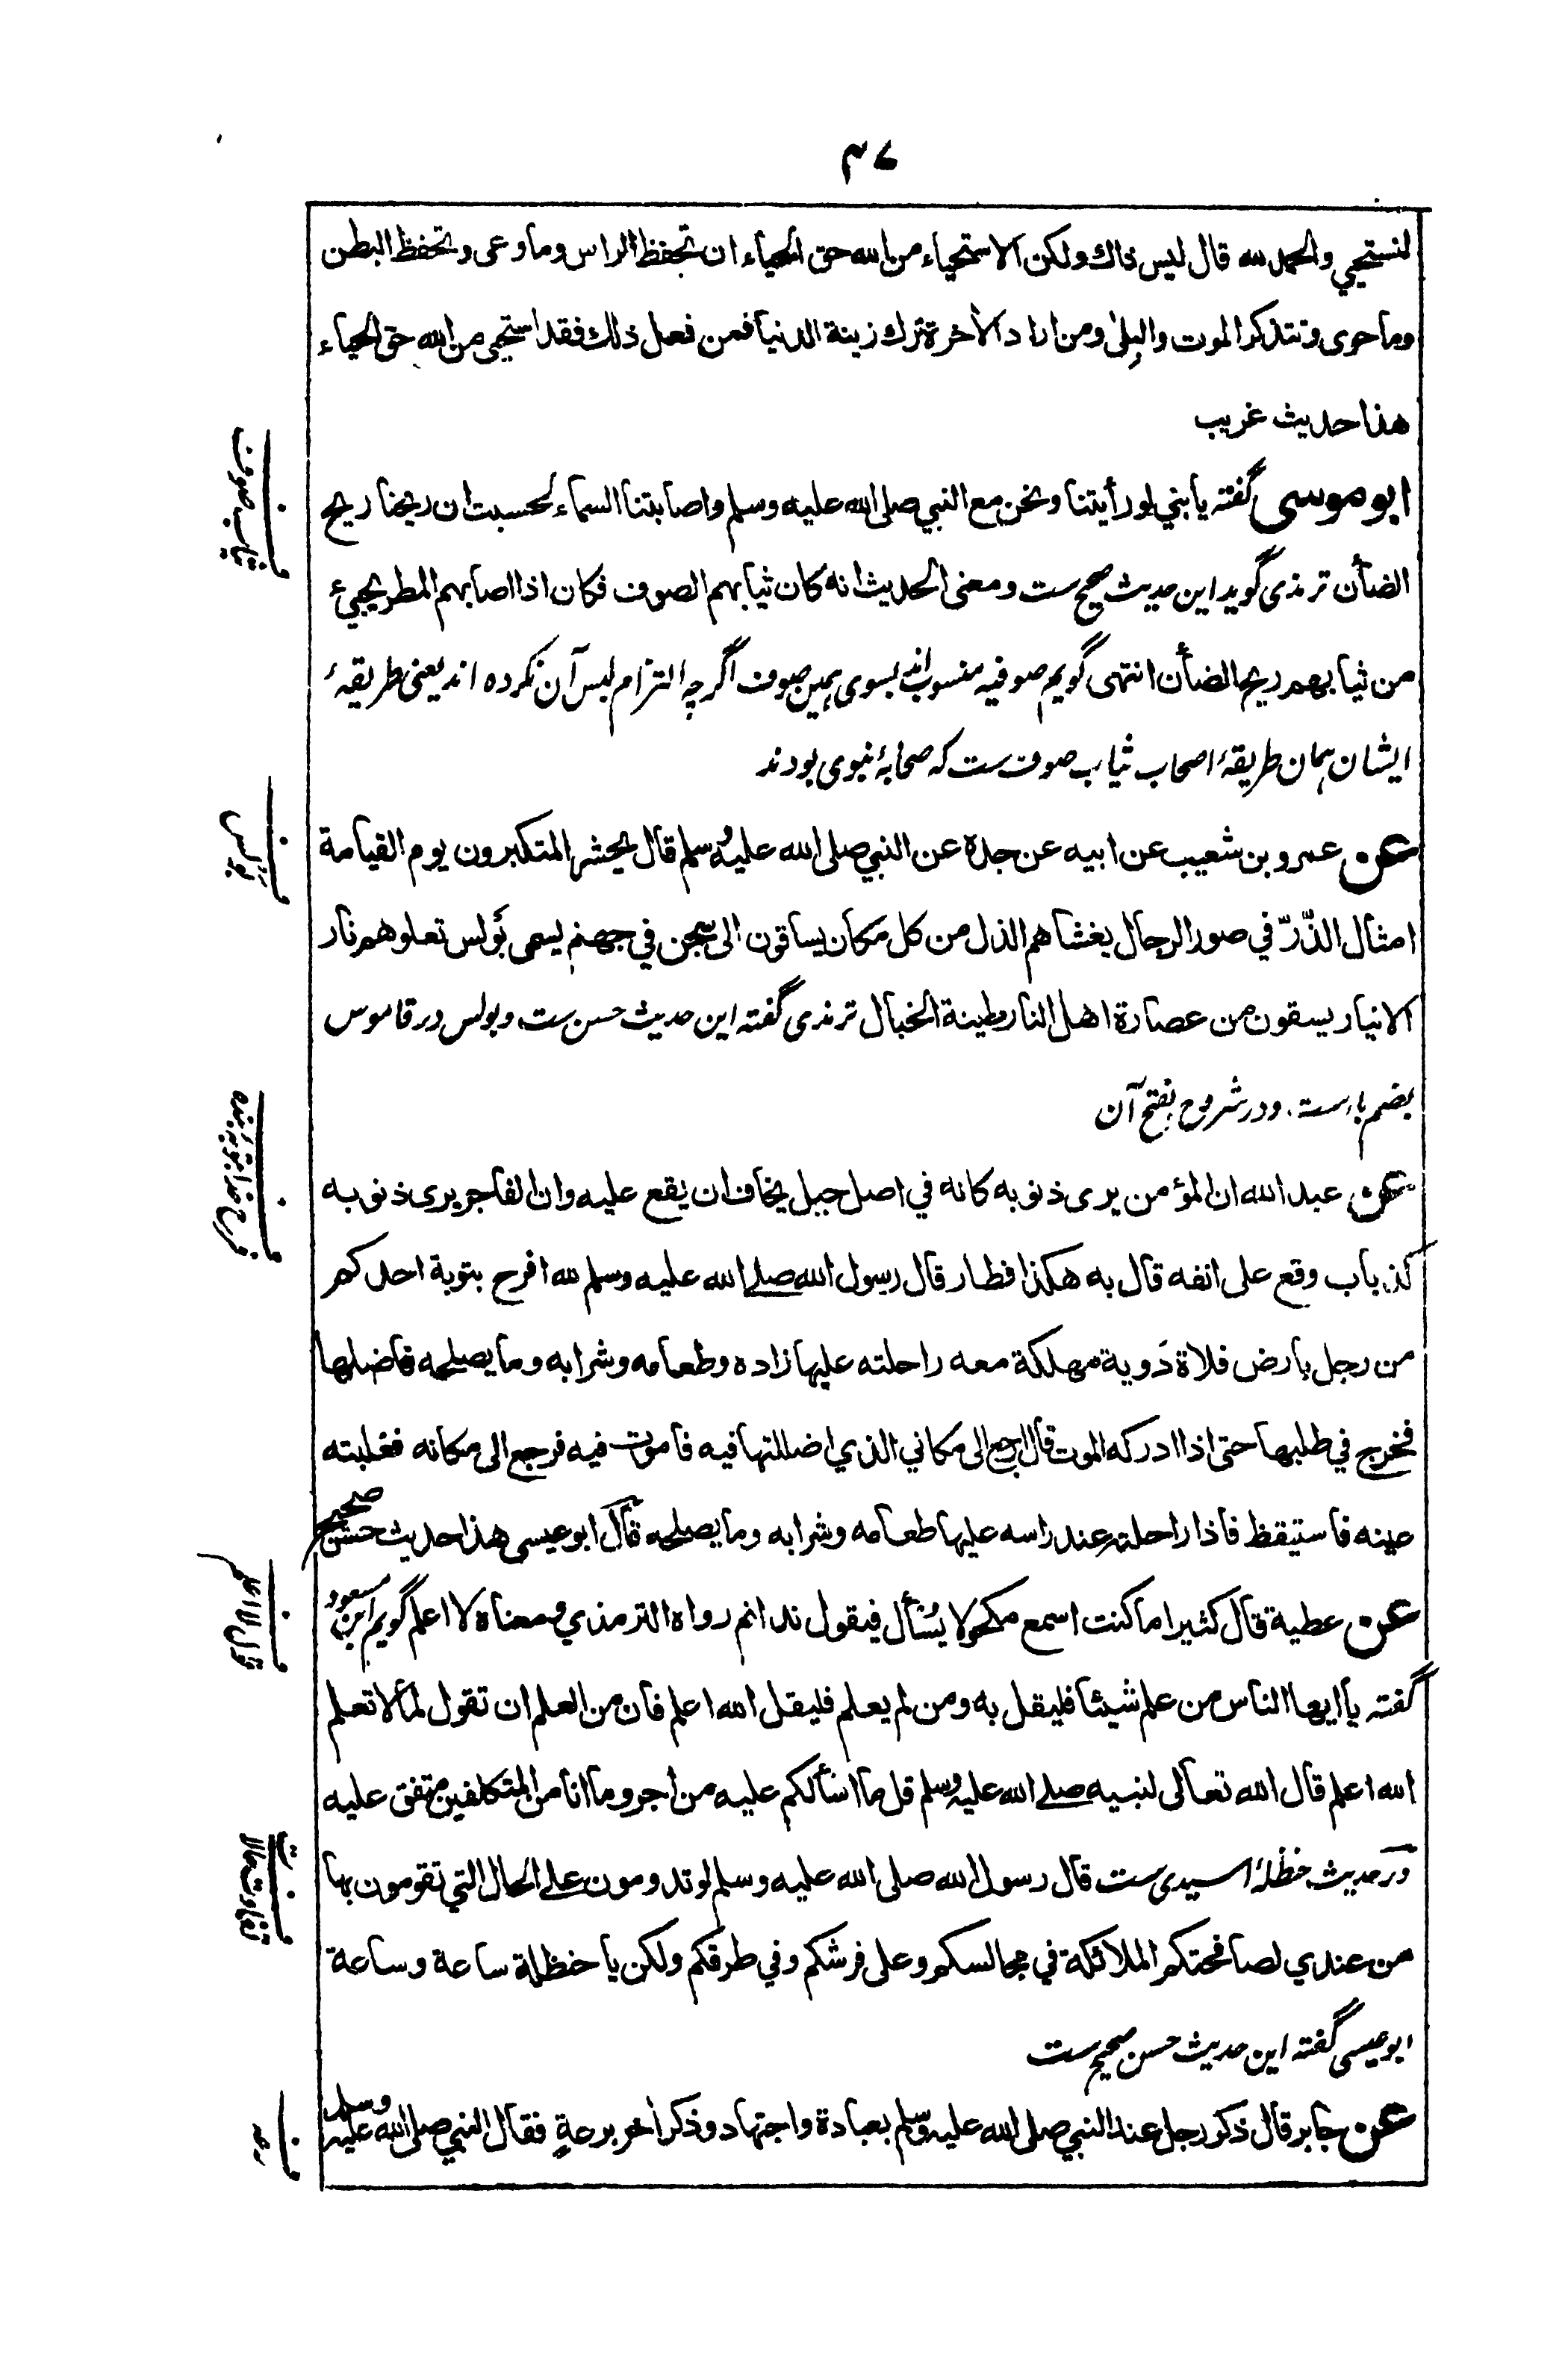 ٣٧
لنستحيي والحمد لله قال ليس ذاك ولكن الاستحياء من الله حق الحياء ان تحفظ الراس وما وعى وتحفظ البطن
وما حوى وتتذكر الموت والبِلىٰ ومن اراد الأخرة ترك زينة الدنيا فمن فعل ذلك فقد استحيى من الله حق الحياء
هذا حديث غريب
ابو موسى گفته يا بني لو رأيتنا ونحن مع النبي صلى الله عليه وسلم واصابتنا السماء لحسبت ان ريحنا ريح
الضأن ترمذی گوید این حدیث صحیح ست ومعنى الحديث انه كان ثيابهم الصوف فكان اذا اصابهم المطر يجيئ
من ثيابهم ريح الضأن انتهى گویم صوفیه منسوب اند بسوی همین صوف اگرچه التزام لبس آن نکرده اند یعنی طریقهٔ
ایشان همان طریقهٔ اصحاب ثیاب صوف ست که صحابهٔ نبوی بودند
ف ثیاب صوف
عن عمرو بن شعيب عن ابيه عن جده عن النبي صلى الله عليه وسلم قال يحشر المتكبرون يوم القيامة
امثال الذّرّ في صور الرجال يغشاهم الذل من كل مكان يساقون الى سجن في جهنم يسمى بَولس تعلوهم نار
الانيار يسقون من عصارة اهل النار طينة الخبال ترمذی گفته این حدیث حسن ست، وبولس در قاموس
بضم باء ست، ودر شروح بفتح آن
ف بولس
عن عبد الله ان المؤمن يرى ذنوبه كانه في اصل جبل يخاف ان يقع عليه وان الفاجر يرى ذنوبه
كذباب وقع على انفه قال به هكذا فطار قال رسول الله صلے الله عليه وسلم لله افرح بتوبة احدكم
من رجل بارض فلاة دَوية مهلكة معه راحلته عليها زاده وطعامه وشرابه وما يصلحه فاضلها
فخرج في طلبها حتى اذا ادركه الموت قال ارجع الى مكاني الذي اضللتها فيه فاموت فيه فرجع الى مكانه فغلبته
عينه فاستيقظ فاذا راحلته عند راسه عليها طعامه وشرابه وما يصلحه قال ابو عيسى هذا حديث حسن صحيح
ف فرح خدا بتوبهٔ بنده
عن عطية قال كثيرا ما كنت اسمع مكحولا يُسْأل فيقول ندانم رواه الترمذي ومعناه لا اعلم گویم ابن مسعود
گفته يا ايها الناس من علم شيئا فليقل به ومن لم يعلم فليقل الله اعلم فان من العلم ان تقول لما لا تعلم
الله اعلم قال الله تعالى لنبيه صلے الله عليه وسلم قل ما اسألكم عليه من اجر وما انا من المتكلفين متفق عليه
ف قول لا اعلم
در حدیث حنظلهٔ اسیدی ست قال رسول الله صلى الله عليه وسلم لو تدومون علے الحال التي تقومون بها
من عندي لصافحتكم الملائكة في مجالسكم وعلى فرشكم وفي طرقكم ولكن يا حنظلة ساعة وساعة
ابو عیسی گفته این حدیث حسن صحیح ست
ف تفاوت حالات
عن جابر قال ذكر رجل عند النبي صلى الله عليه وسلم بعبادة واجتهاد وذكر أخر برعةٍ فقال النبي صلى الله عليه وسلم